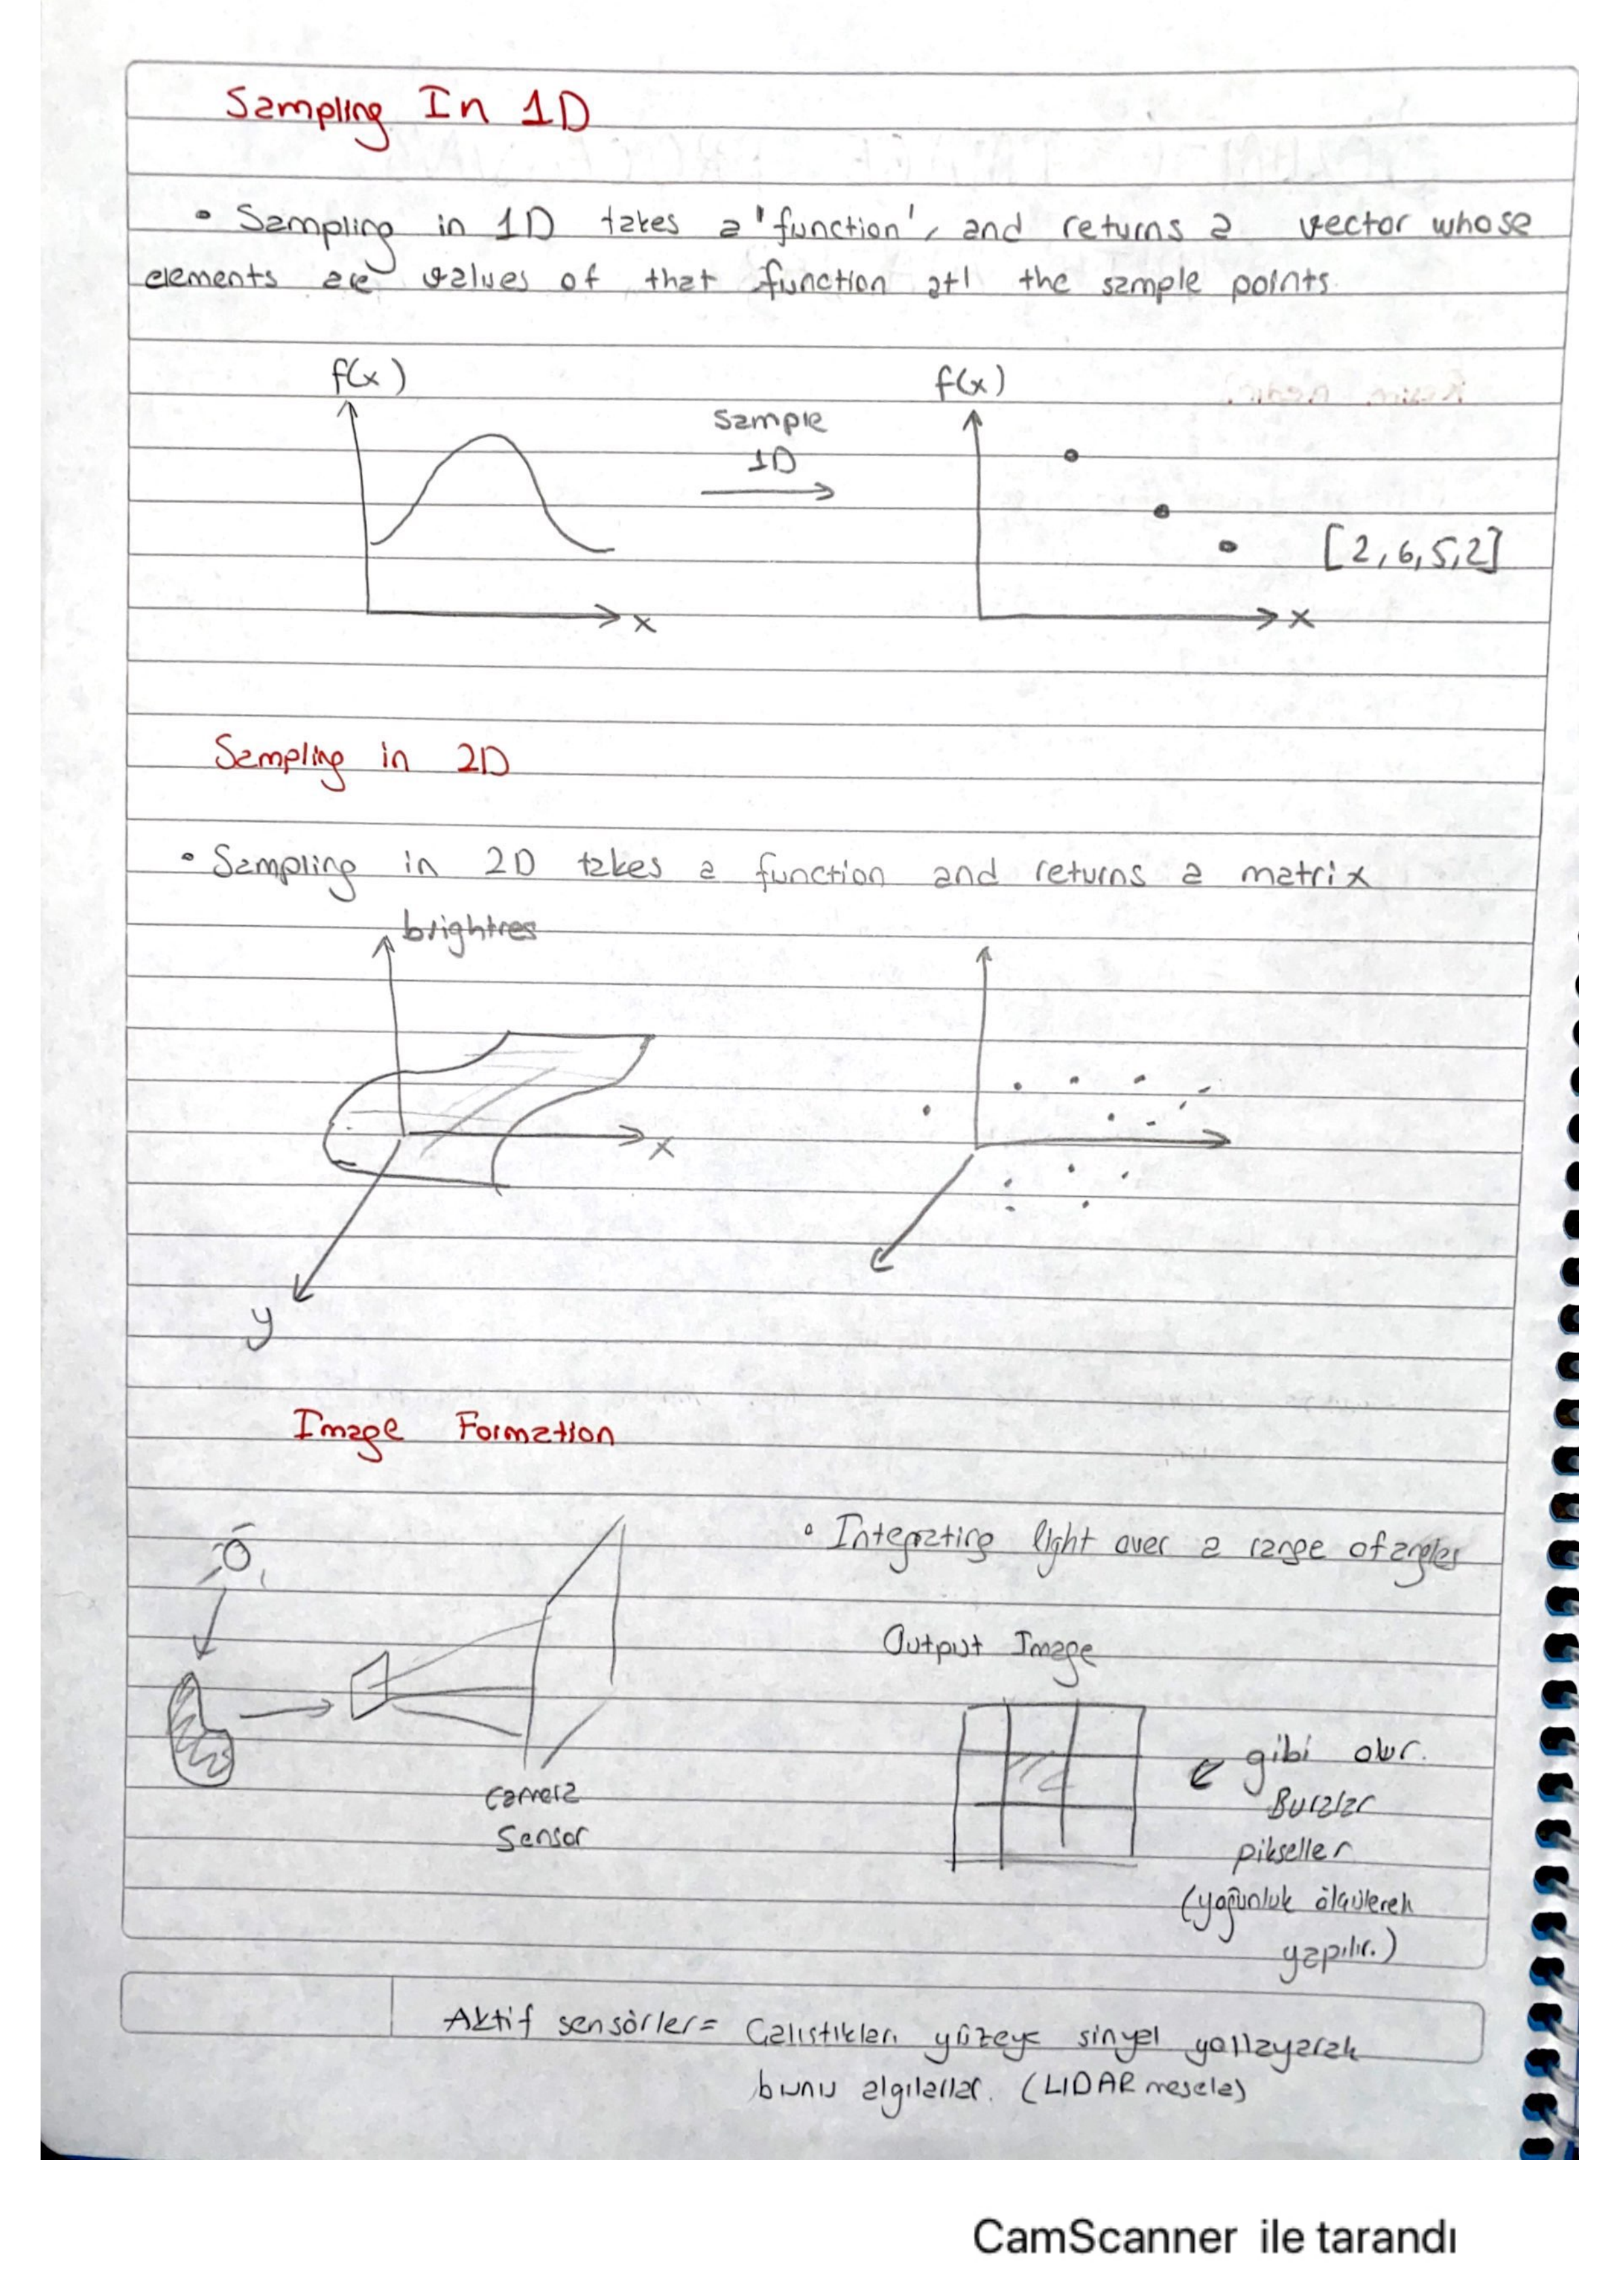 Sampling In 1D
• Sampling in 1D takes a 'function', and returns a vector whose
elements are values of that function at the sample points.
f(x)
f(x)
Sample
1D
[2,6,5,2]
x
x
Sampling in 2D
• Sampling in 2D takes a function and returns a matrix
brightnes
x
y
Image Formation
• Integrating light over a range of angles
Output Image
gibi olur.
Camera
Buralar
Sensor
pikseller
(yoğunluk ölçülerek
yapılır.)
Aktif sensörler= Çalıştıkları yüzeye sinyal yollayarak
bunu algılarlar. (LIDAR mesela)
CamScanner ile tarandı